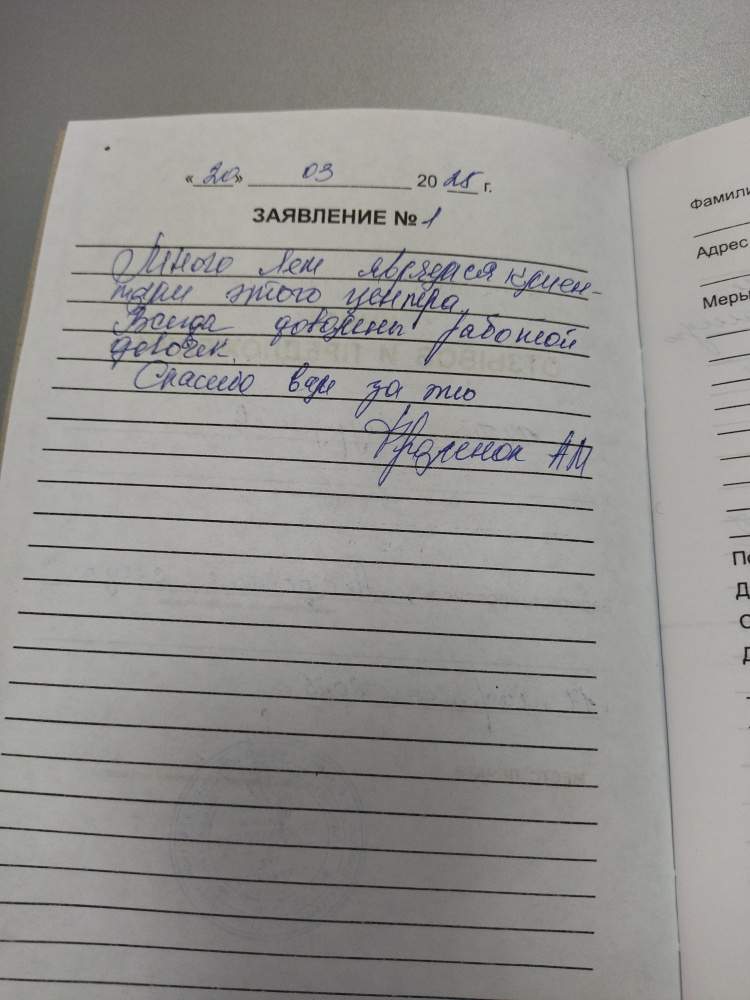 «20» 03 2025 г.
ЗАЯВЛЕНИЕ № 1
Много лет являемся клиен-
тами этого центра.
Всегда довольны работой
девочек.
Спасибо вам за это
АМ
Фамили
Адрес
Меры